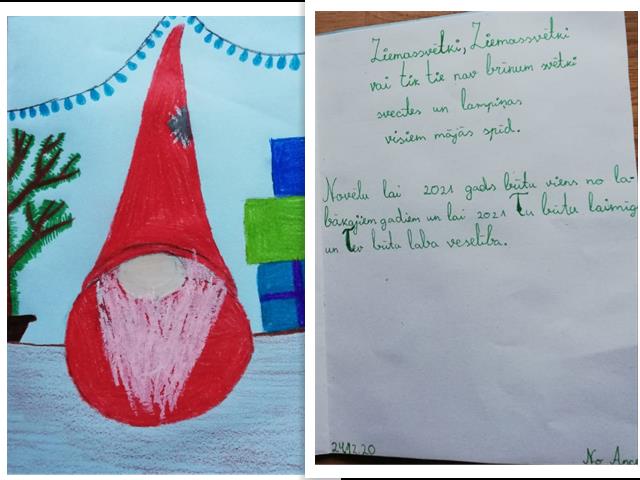 Ziemassvētki, Ziemassvētki
vai tik tie nav brīnum svētki
svecītes un lampiņas
visiem mājās spīd.
Novēlu lai 2021 gads būtu viens no la-
bākajiem gadiem un lai 2021 Tu būtu laimīg
un Tev būtu laba veselība.
24.12.20
No